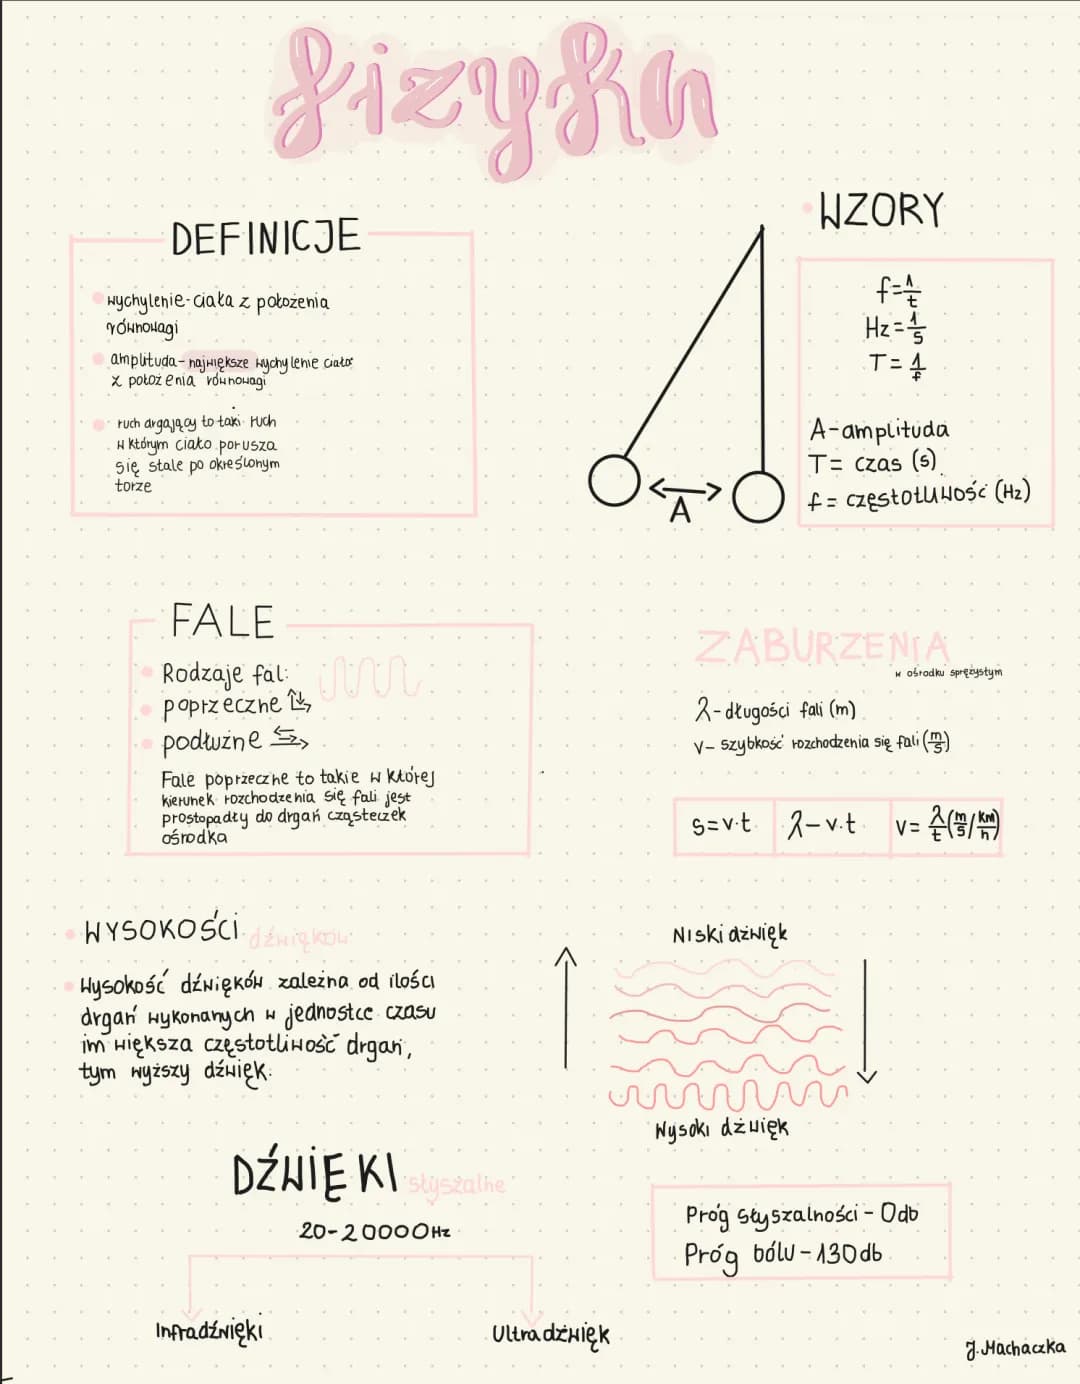 fizyka
DEFINICJE
wychylenie-ciała z położenia
równowagi
amplituda-największe wychylenie ciała
z położenia równowagi
ruch argający to taki ruch
w którym ciało porusza
się stale po określonym
torze
A
WZORY
f=1/t
Hz=1/s
T=1/f
A-amplituda
T= czas (s)
f= częstotliwość (Hz)
FALE
Rodzaje fal:
poprzeczne
podłużne
Fale poprzeczne to takie w której
kierunek rozchodzenia się fali jest
prostopadły do drgań cząsteczek
ośrodka
ZABURZENIA
w ośrodku sprężystym
λ-długości fali (m)
v- szybkość rozchodzenia się fali (m/s)
s=v·t λ-v·t v=λ/t(m/s/km/h)
WYSOKOŚCI dźwięków
Wysokość dźwięków zależna od ilości
drgań wykonanych w jednostce czasu
im większa częstotliwość drgań,
tym wyższy dźwięk.
Niski dźwięk
Wysoki dźwięk
DŹWIĘKI słyszalne
20-20000Hz
Infradźwięki
Ultradźwięk
Próg słyszalności - 0db
Próg bólu - 130db
J.Machaczka